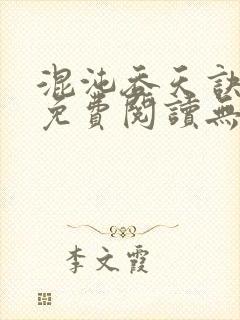 混沌吞天訣
免費閱讀無
李文霞